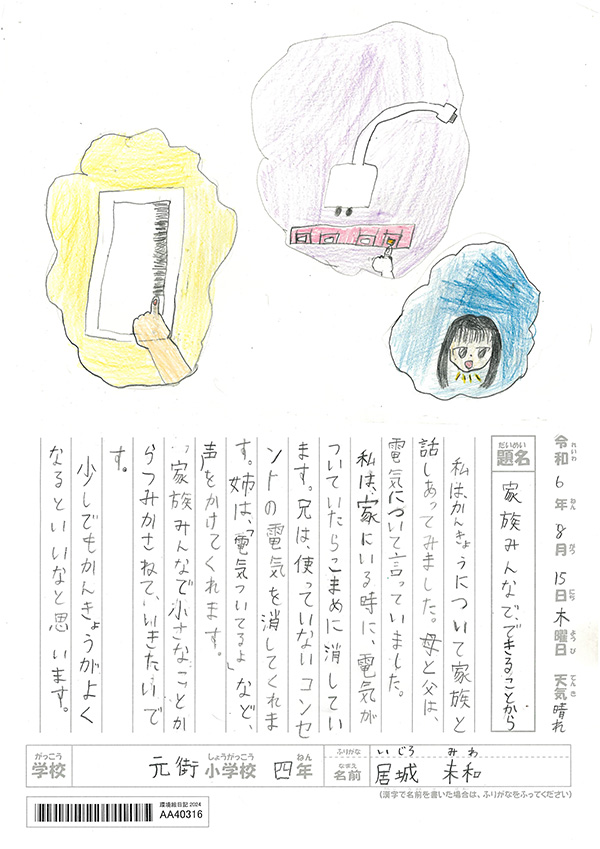 令和6年8月15日木曜日 天気晴れ
れいわ ねん がつ にち ようび てんき
だいめい
題名 家族みんなで、できることから
私は、かんきょうについて家族と
話しあってみました。母と父は、
電気について言っていました。
私は、家にいる時に、電気が
ついていたらこまめに消してい
ます。兄は使っていないコンセ
ントの電気を消してくれま
す。姉は、「電気ついてるよ」など、
声をかけてくれます。
「家族みんなで小さなことか
らつみかさねて、いきたいで
す。
少しでもかんきょうがよく
なるといいなと思います。
がっこう しょうがっこう ねん ふりがな いじろ みわ
学校 元街小学校 四年 なまえ 名前 居城 未和
(漢字で名前を書いた場合は、ふりがなをふってください)
環境絵日記 2024
AA40316